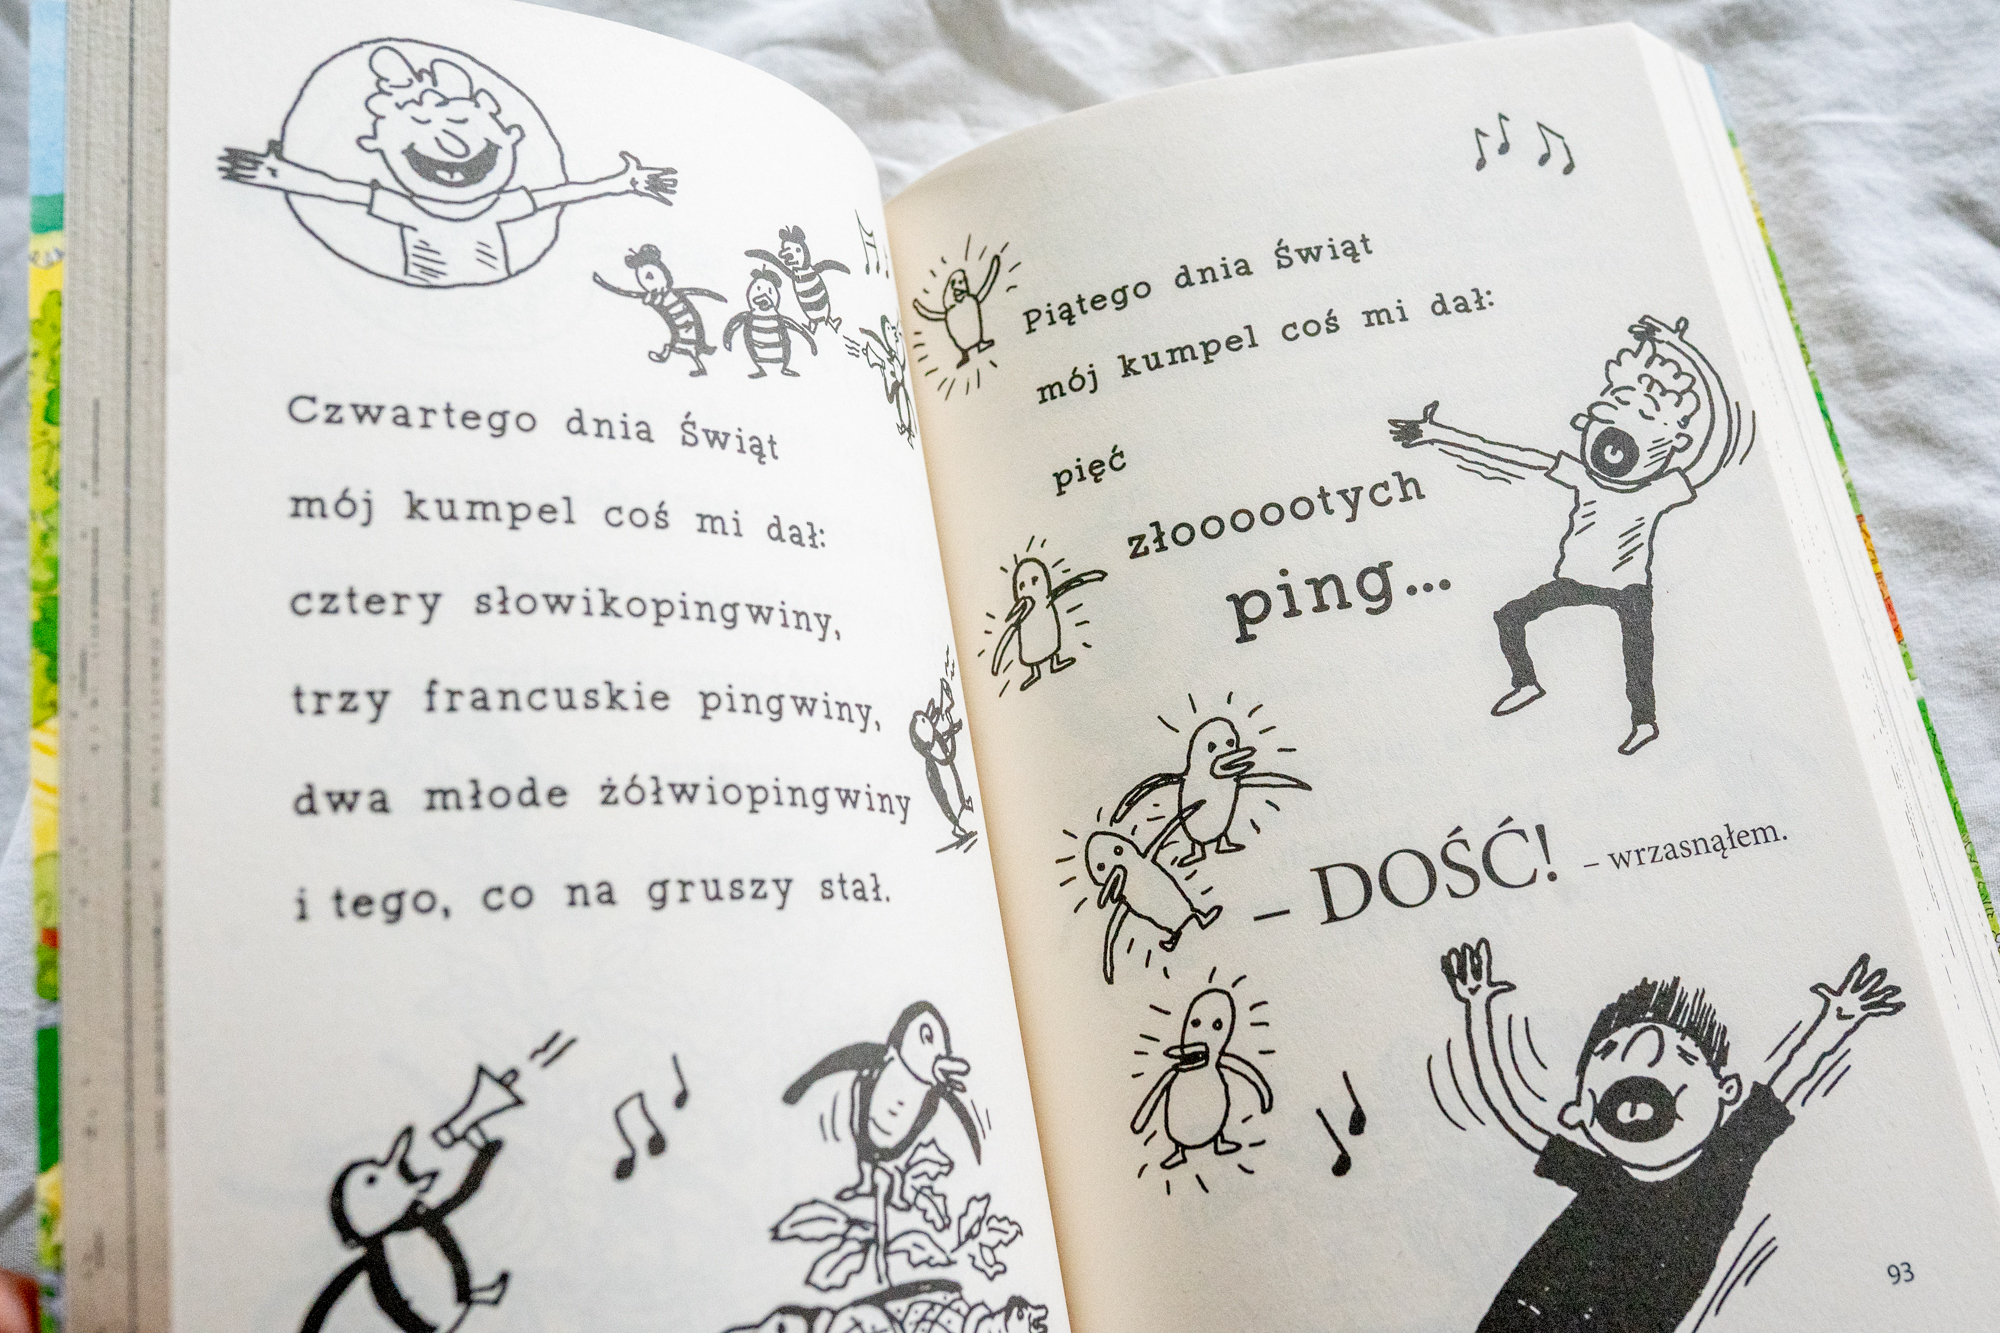 Czwartego dnia Świąt
mój kumpel coś mi dał:
cztery słowikopingwiny,
trzy francuskie pingwiny,
dwa młode żółwiopingwiny
i tego, co na gruszy stał.
Piątego dnia Świąt
mój kumpel coś mi dał:
pięć
złoooootych
ping...
– DOŚĆ! – wrzasnąłem.
93